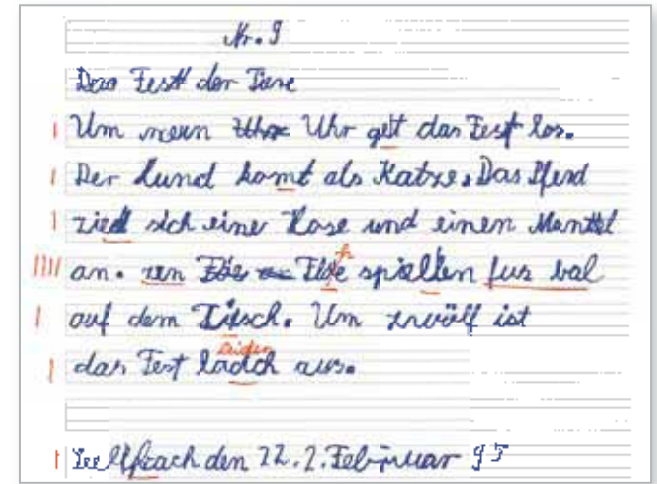 Nr. 9
Das Fest der Tiere
Um neun Uhr get das Fest los.
Der Hund komt als Katze. Das Pferd
zied sich eine Hose und einen Mantel
an. zen Flöe spielen fus bal
auf dem Tisch. Um zwölf ist
das Fest leider aus.
den 22. 2. Februar 95